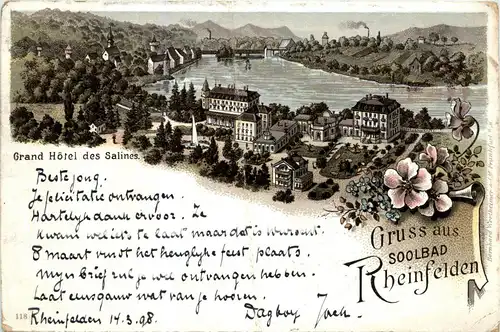 Grand Hôtel des Salines.
Beste jong.
Je felicitatie ontvangen.
Hartelijk dank ervoor. Ze
kwam wel iets te laat maar dat is
8 maart vindt het heuglijke feit plaats.
Mijn brief zul je wel ontvangen hebben.
Laat eens gauw wat van je hooren.
Rheinfelden 14.3.98. Dag boy
Gruss aus
SOOLBAD
Rheinfelden
118